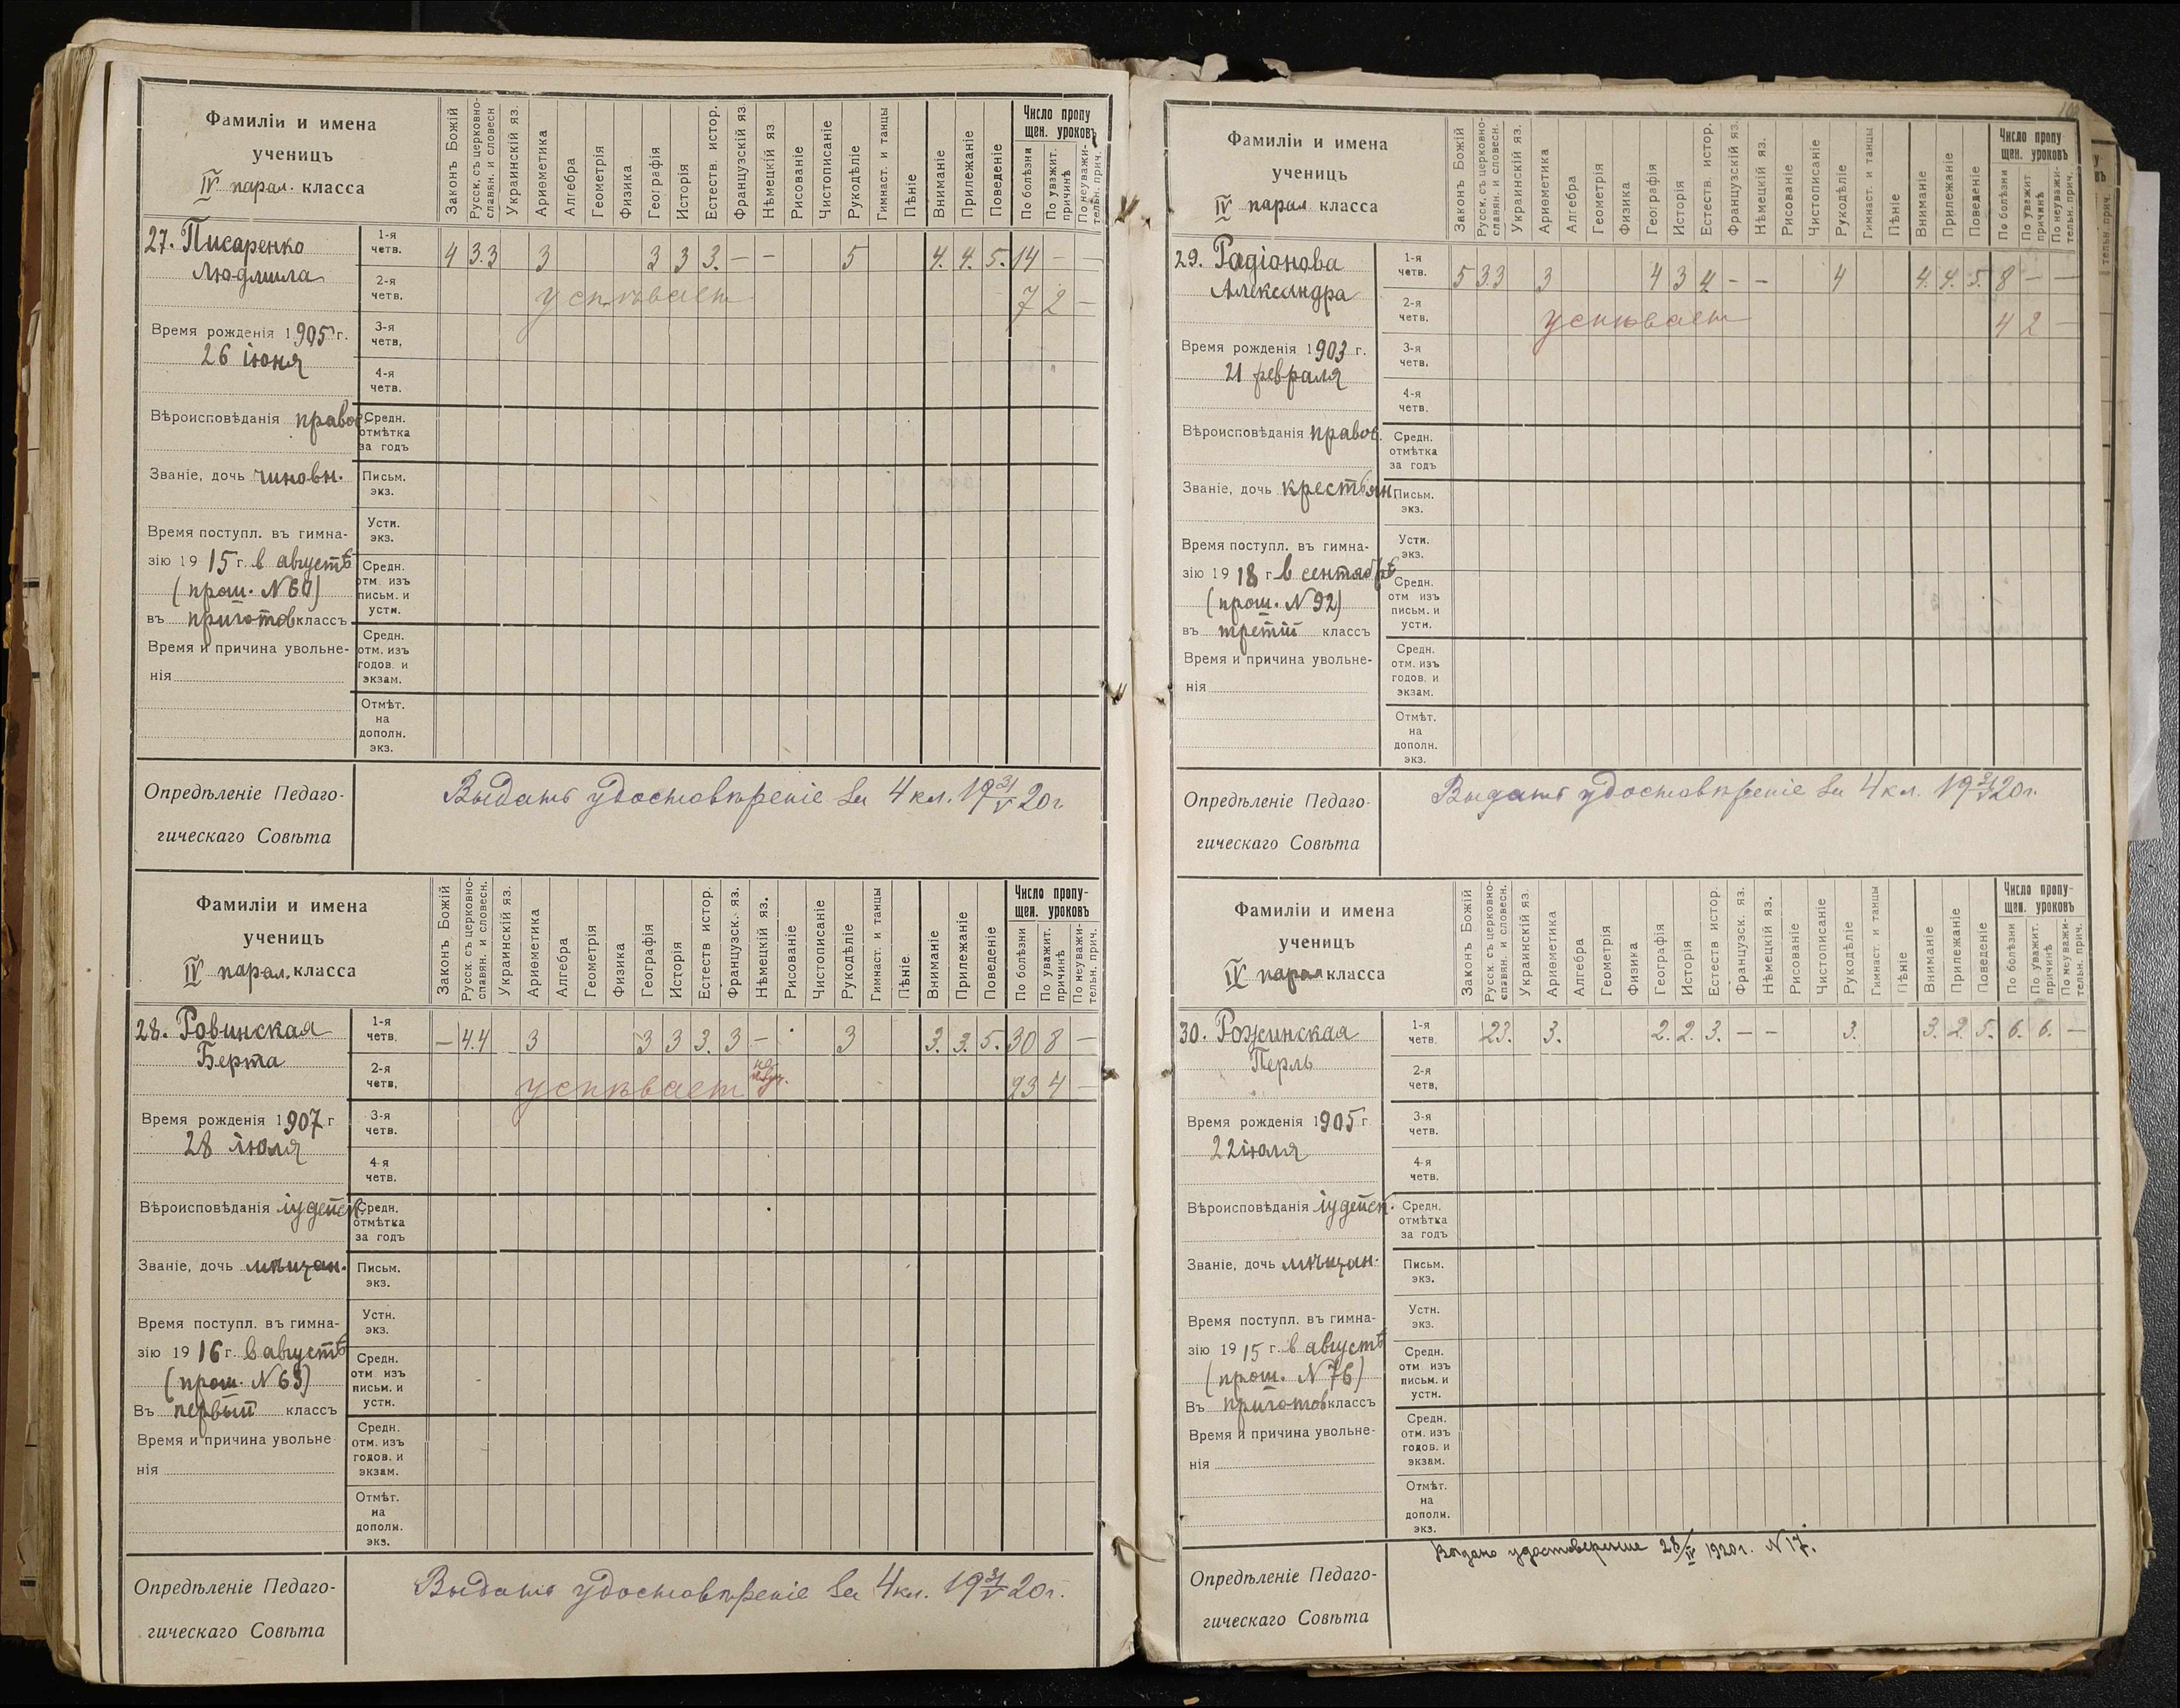 Фамиліи и имена
ученицъ
IV парал. класса
Законъ Божій
Русск. съ церковно-
славян. и словесн
Украинскій яз.
Ариѳметика
Алгебра
Геометрія
Физика
Географія
Исторія
Естеств. истор.
Французскій яз
Нѣмецкій яз
Рисованіе
Чистописаніе
Рукодѣліе
Гимнаст. и танцы
Пѣніе
Вниманіе
Прилежаніе
Поведеніе
Число пропу
щен. уроковъ
По болѣзни
По уважит.
причинѣ
По неуважи-
тельн. прич.
27. Писаренко
Людмила
1-я
четв.
4 3.3 3 3 3 3. – – 5 4. 4. 5. 14 – –
2-я
четв.
успѣваетъ 7 2 –
Время рожденія 1905 г.
26 іюня
3-я
четв.
4-я
четв.
Вѣроисповѣданія правос.
Средн.
отмѣтка
за годъ
Званіе, дочь чиновн.
Письм.
экз.
Время поступл. въ гимна-
зію 19 15 г. в августѣ
(прош. N 60)
въ приготов классъ
Устн.
экз.
Средн.
отм. изъ
письм. и
устн.
Время и причина увольне-
нія
Средн.
отм. изъ
годов. и
экзам.
Отмѣт.
на
дополн.
экз.
Опредѣленіе Педаго-
гическаго Совѣта
Выдать удостовѣреніе за 4 кл. 19 31/V 20 г.
Фамиліи и имена
ученицъ
IV парал. класса
Законъ Божій
Русск. съ церковно-
славян. и словесн.
Украинскій яз.
Ариѳметика
Алгебра
Геометрія
Физика
Географія
Исторія
Естеств истор.
Французск. яз.
Нѣмецкій яз.
Рисованіе
Чистописаніе
Рукодѣліе
Гимнаст. и танцы
Пѣніе.
Вниманіе
Прилежаніе
Поведеніе
Число пропу-
щен. уроковъ
По болѣзни
По уважит.
причинѣ
По неуважи-
тельн. прич.
28. Ровинская
Берта
1-я
четв.
– 4.4 3 3 3 3. 3 – 3 3. 3. 5. 30 8 –
2-я
четв.
успѣваетъ 23 4 –
Время рожденія 1907 г
28 іюля
3-я
четв.
4-я
четв.
Вѣроисповѣданія іудейск.
Средн.
отмѣтка
за годъ
Званіе, дочь мѣщан.
Письм.
экз.
Время поступл. въ гимна-
зію 19 16 г. в августѣ
(прош. N 63)
Въ первый классъ
Устн.
экз.
Средн.
отм изъ
письм. и
устн.
Время и причина увольне
нія
Средн.
отм. изъ
годов. и
экзам.
Отмѣт.
на
дополн.
экз.
Опредѣленіе Педаго-
гическаго Совѣта
Выдать удостовѣреніе за 4 кл. 19 31/V 20 г.
Фамиліи и имена
ученицъ
IV парал класса
Законъ Божій
Русск. съ церковно-
славян. и словесн.
Украинскій яз.
Ариѳметика
Алгебра
Геометрія
Физика
Географія
Исторія
Естеств. истор.
Французскій яз.
Нѣмецкій яз.
Рисованіе
Чистописаніе
Рукодѣліе
Гимнаст. и танцы
Пѣніе
Вниманіе
Прилежаніе
Поведеніе
Число пропу
щен. уроковъ
По болѣзни
По уважит
причинѣ
По неуважи-
тельн. прич.
29. Радіонова
Александра
1-я
четв.
5 3.3 3 4 3 4. – – 4 4. 4. 5. 8 – –
2-я
четв.
успѣваетъ 4 2 –
Время рожденія 1903 г.
21 февраля
3-я
четв.
4-я
четв.
Вѣроисповѣданія правос.
Средн.
отмѣтка
за годъ
Званіе, дочь крестьян
Письм.
экз.
Время поступл. въ гимна-
зію 19 18 г в сентябрѣ
(прош. N 92)
въ третій классъ
Устн.
экз.
Средн.
отм изъ
письм. и
устн.
Время и причина увольне-
нія
Средн.
отм. изъ
годов. и
экзам.
Отмѣт.
на
дополн.
экз.
Опредѣленіе Педаго-
гическаго Совѣта
Выдать удостовѣреніе за 4 кл. 19 31/V 20 г.
Фамиліи и имена
ученицъ
IV парал класса
Законъ Божій
Русск. съ церковно-
славян. и словесн.
Украинскій яз.
Ариѳметика
Алгебра
Геометрія
Физика
Географія
Исторія
Естеств истор
Француск. яз.
Нѣмецкій яз.
Рисованіе
Чистописаніе
Рукодѣліе
Гимнаст. и танцы
Пѣніе
Вниманіе
Прилежаніе
Поведеніе
Число пропу-
щен. уроковъ
По болѣзни
По уважит.
причинѣ
По неуважи-
тельн. прич.
30. Рожинская
Перль
1-я
четв.
2 3. 3. 2. 2. 3. – – 3. 3. 2. 5. 6. 6. –
2-я
четв.
Время рожденія 1905 г
22 іюля
3-я
четв.
4-я
четв.
Вѣроисповѣданія іудейск.
Средн.
отмѣтка
за годъ
Званіе, дочь мѣщан.
Письм.
экз.
Время поступл. въ гимна-
зію 19 15 г. в августѣ
(прош. N 76)
Въ приготов классъ
Устн.
экз.
Средн.
отм изъ
письм. и
устн.
Время и причина увольне-
нія
Средн.
отм. изъ
годов. и
экзам.
Отмѣт.
на
дополн.
экз.
Опредѣленіе Педаго-
гическаго Совѣта
Выдано удостоверение 28/IV 1920 г. N 17.